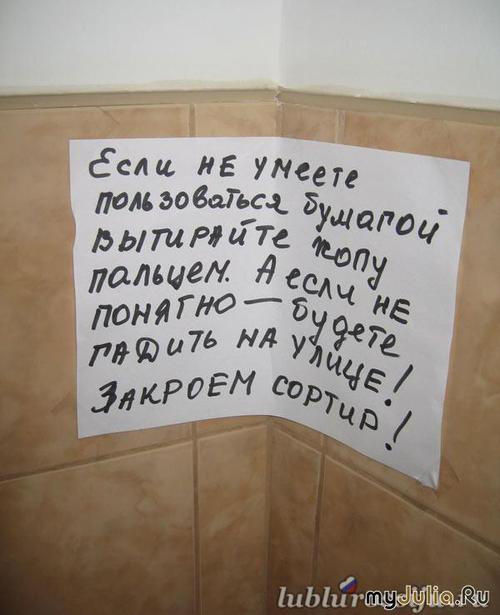 Если не умеете
пользоваться бумагой
вытирайте жопу
пальцем. А если не
понятно — будете
гадить на улице!
Закроем сортир!
myJulia.Ru